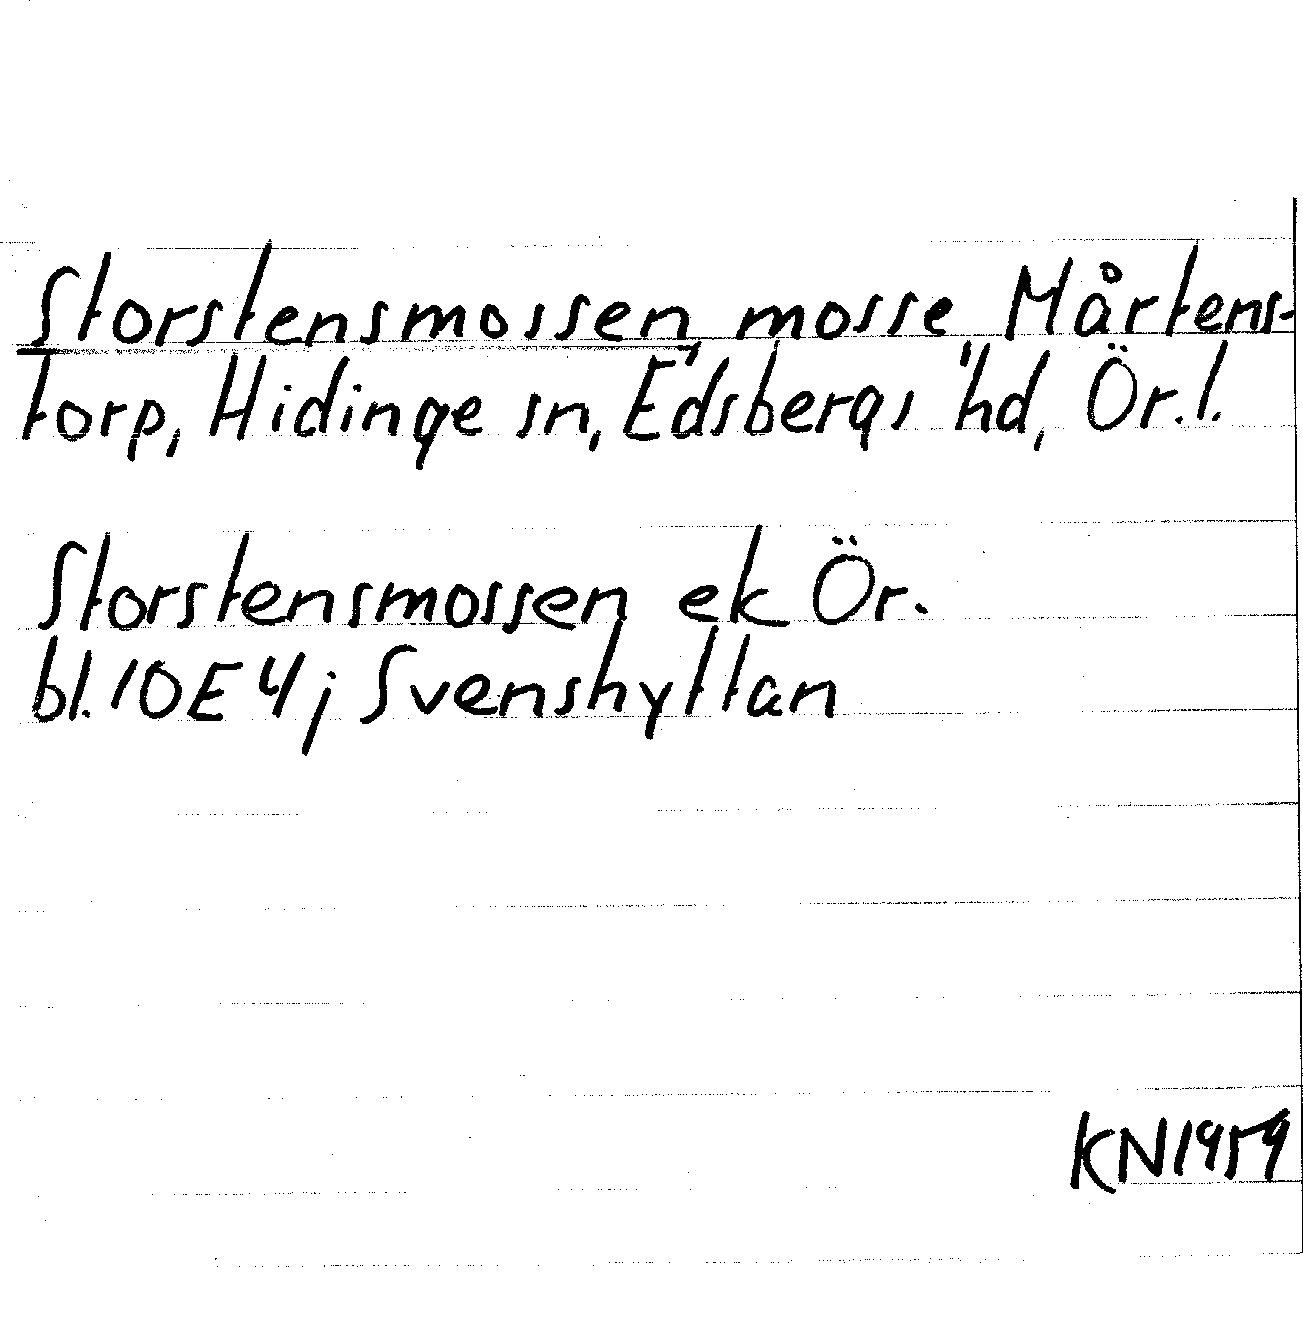 Storstensmossen, mosse Mårtens-
torp, Hidinge sn, Edsbergs hd, Ör.l.
Storstensmossen ek Ör.
bl. 10E 4j Svenshyttan
KN1959